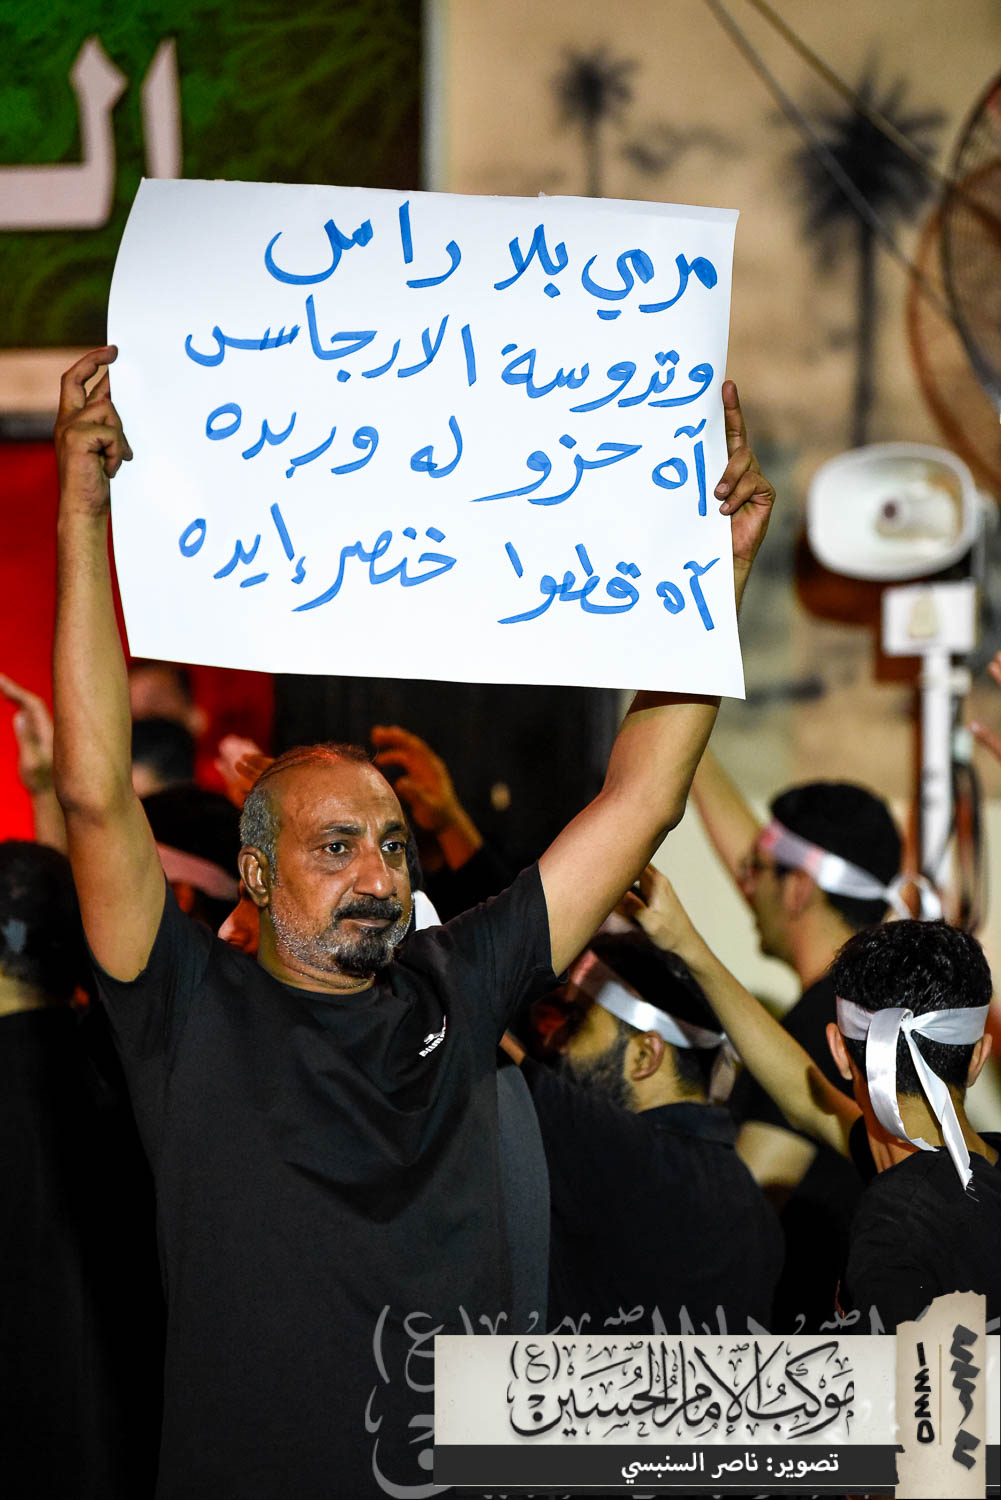 مرمي بلا راس
وتدوسة الارجاس
آه حزو له وريده
آه قطعوا خنصر إيده
موكب الإمام الحسين (ع)
تصوير: ناصر السنبسي